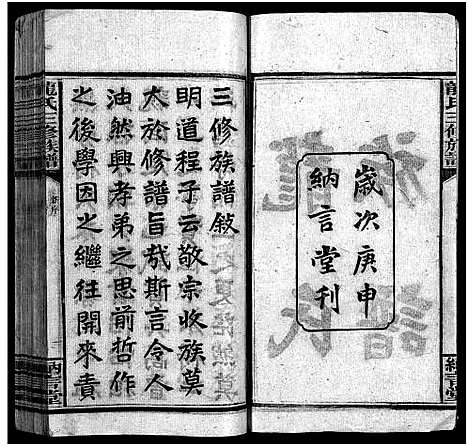 歲次庚申
納言堂刊
龍氏三修族譜
納言堂
三修族譜敘
明道程子云敬宗收族莫
大於修譜旨哉斯言令人
油然興孝弟之思前哲作
之後學因之繼往開來責
龍氏三修族譜
納言堂